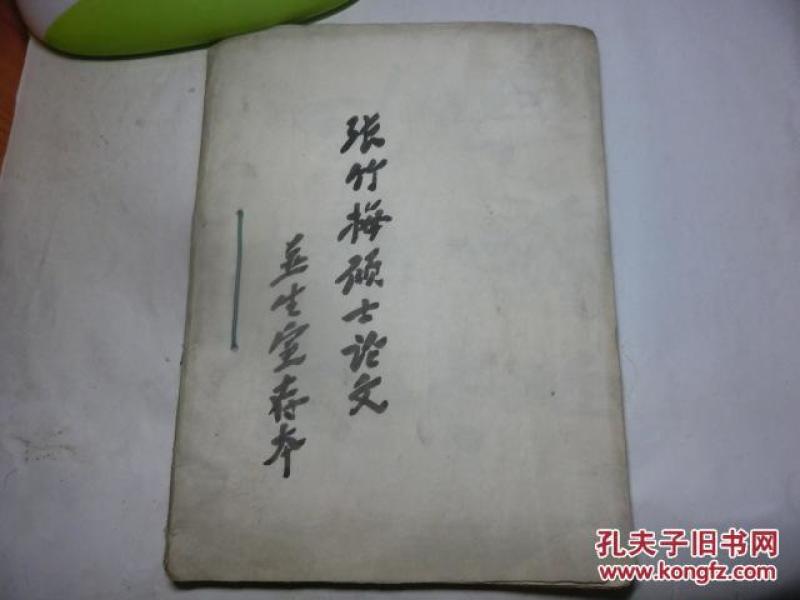 张竹梅硕士论文
无生室存本
孔夫子旧书网
www.kongfz.com